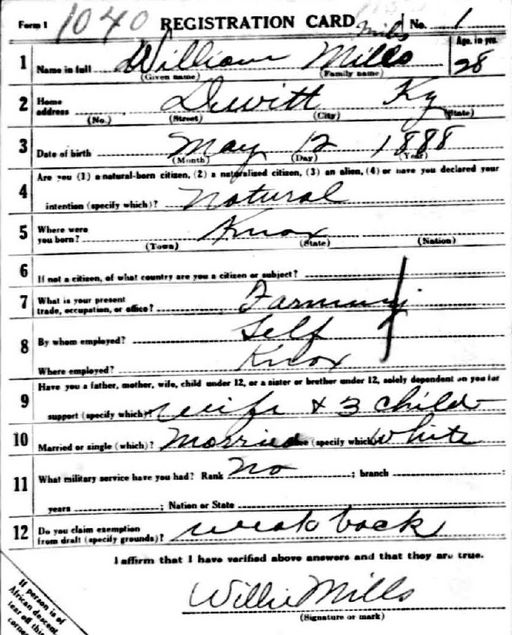 Form 1 1040 REGISTRATION CARD Mills No. 1
1 Name in full William Mills Age, in yrs. 28
(Given name) (Family name)
2 Home address Dewitt Ky
(No.) (Street) (City) (State)
3 Date of birth May 12 1888
(Month) (Day) (Year)
4 Are you (1) a natural-born citizen, (2) a naturalized citizen, (3) an alien, (4) or have you declared your
intention (specify which)? Natural
5 Where were you born? Knox
(Town) (State) (Nation)
6 If not a citizen, of what country are you a citizen or subject?
7 What is your present trade, occupation, or office? Farming
8 By whom employed? Self
Where employed? Knox
9 Have you a father, mother, wife, child under 12, or a sister or brother under 12, solely dependent on you for
support (specify which)? wife & 3 child
10 Married or single (which)? Married (specify which) White
11 What military service have you had? Rank No ; branch
years ; Nation or State
12 Do you claim exemption from draft (specify grounds)? weak back
I affirm that I have verified above answers and that they are true.
Willie Mills
(Signature or mark)
If person is of
African descent,
tear off this
corner